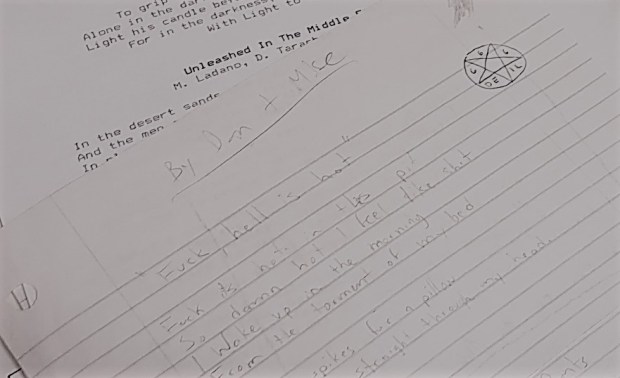 To grip
Alone in the dar
Light his candle be
For in the darkness
With Light to
Unleashed In The Middle
M. Ladano, D.
In the desert sands
And the men
In
By Dan + Mike
"Fuck hell is hot"
Fuck its hot in the pit
So damn hot I feel like shit
I Wake up in the morning
From the torment of my bed
spikes for a pillow
straight through my head